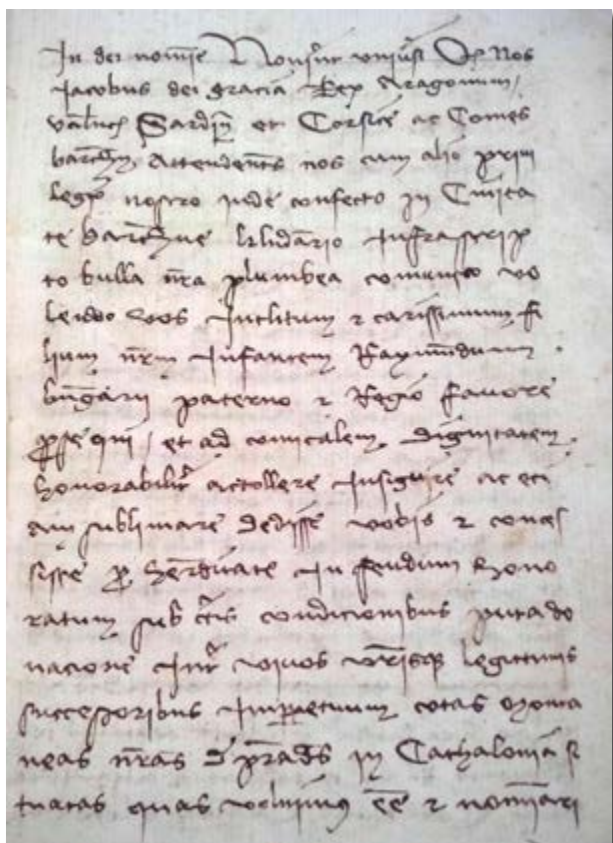 In dei nomine Noverint universi Qd Nos
Jacobus dei gracia Rex Aragonum,
valence Sardin et Corsice ac Comes
barchn. Attendentes nos cum alio privi
legio nostro inde confecto in Civita
te barchne kalendario infrascrip
to bulla nra plumbea comunito vo
lendo vos Inclitum z carissimum fi
lium nrm Infantem Raymundum
bngarii paterno z Regio favore
prosequi, et ad comitalem dignitatem
honorabilir actollere insignire ac eci
am sublimare dedisse vobis z conces
sisse pro hereditate in feudum hono
ratum sub ctis condicionibus pura do
nacione intr vivos vrisque legittimis
successoribus Imppetuum totas monta
neas nras de prades in Cathalonia si
tuatas quas volumus ee z nominari